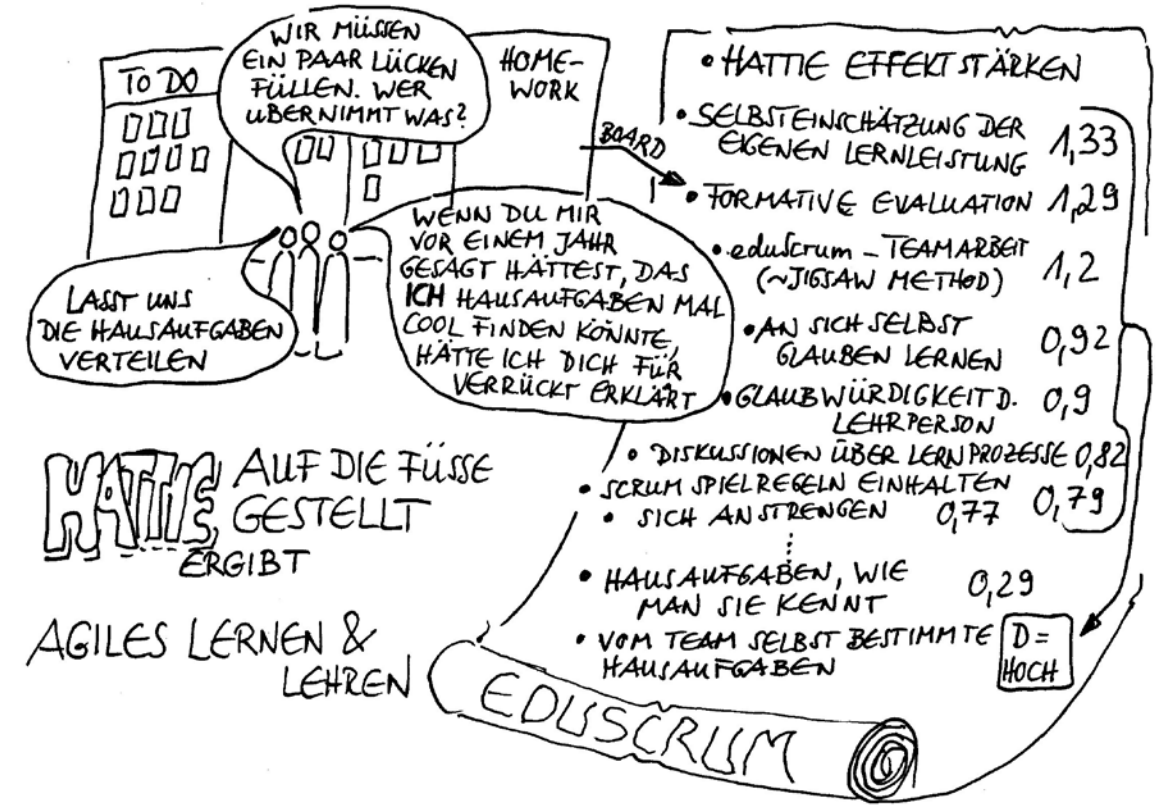 TO DO
WIR MÜSSEN
EIN PAAR LÜCKEN
FÜLLEN. WER
ÜBERNIMMT WAS?
HOME-
WORK
BOARD
LASST UNS
DIE HAUSAUFGABEN
VERTEILEN
WENN DU MIR
VOR EINEM JAHR
GESAGT HÄTTEST, DAS
ICH HAUSAUFGABEN MAL
COOL FINDEN KÖNNTE,
HÄTTE ICH DICH FÜR
VERRÜCKT ERKLÄRT
HATTIE AUF DIE FÜSSE
GESTELLT
ERGIBT
AGILES LERNEN &
LEHREN
• HATTIE EFFEKTSTÄRKEN
• SELBSTEINSCHÄTZUNG DER
EIGENEN LERNLEISTUNG 1,33
• FORMATIVE EVALUATION 1,29
• eduScrum – TEAMARBEIT
(~JIGSAW METHOD) 1,2
• AN SICH SELBST
GLAUBEN LERNEN 0,92
• GLAUBWÜRDIGKEIT D.
LEHRPERSON 0,9
• DISKUSSIONEN ÜBER LERNPROZESSE 0,82
• SCRUM SPIELREGELN EINHALTEN 0,79
• SICH ANSTRENGEN 0,77
• HAUSAUFGABEN, WIE
MAN SIE KENNT 0,29
• VOM TEAM SELBST BESTIMMTE
HAUSAUFGABEN
D=
HOCH
EDUSCRUM